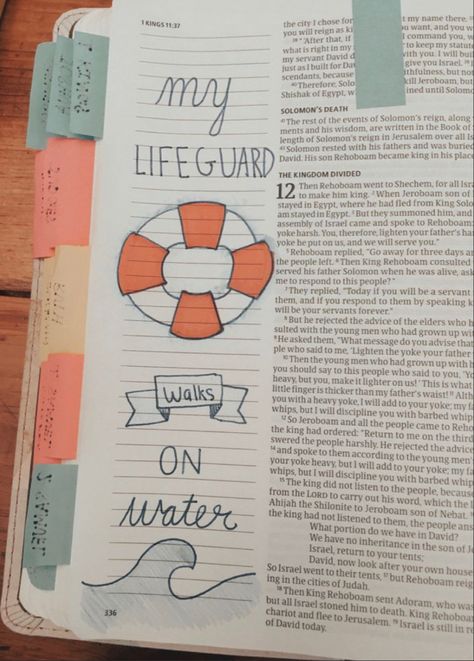 1 KINGS 11:37
my
LIFEGUARD
Walks
ON
water
336
the city I chose for my name there.
you will reign as ki you want, and you w
38 "After that, if I command you, w
what is right in my to keep my statute
my servant David d with you. I will buil
just as I built for Dav give you Israel.
scendants, because nfaithfulness, but no
40 Therefore, Solo kill Jeroboam, but
Shishak of Egypt, w ined until Solomon
SOLOMON'S DEATH
41 The rest of the events of Solomon's reign, along
ments and his wisdom, are written in the Book of
length of Solomon's reign in Jerusalem over all Is
43 Solomon rested with his fathers and was buried
David. His son Rehoboam became king in his plac
THE KINGDOM DIVIDED
12 Then Rehoboam went to Shechem, for all Isr
to make him king. 2 When Jeroboam son of
stayed in Egypt, where he had fled from King Solo
am stayed in Egypt. 3 But they summoned him, and
assembly of Israel came and spoke to Rehoboam
yoke harsh. You, therefore, lighten your father's har
yoke he put on us, and we will serve you."
5 Rehoboam replied, "Go away for three days an
the people left. 6 Then King Rehoboam consulted
served his father Solomon when he was alive, as
me to respond to this people?"
7 They replied, "Today if you will be a servant
them, and if you respond to them by speaking k
will be your servants forever."
8 But he rejected the advice of the elders wh
sulted with the young men who had grown up wi
9 He asked them, "What message do you advise that
ple who said to me, 'Lighten the yoke your father
10 Then the young men who had grown up with h
you should say to this people who said to you, 'Yo
heavy, but you, make it lighter on us!' This is what
little finger is thicker than my father's waist! 11 Alth
you with a heavy yoke, I will add to your yoke; my fa
whips, but I will discipline you with barbed whip
12 So Jeroboam and all the people came to Reho
the king had ordered: "Return to me on the third
swered the people harshly. He rejected the advice
14 and spoke to them according to the young men'
your yoke heavy, but I will add to your yoke; my fa
whips, but I will discipline you with barbed whips
15 The king did not listen to the people, because
from the LORD to carry out his word, which the L
Ahijah the Shilonite to Jeroboam son of Nebat.
the king had not listened to them, the people an
What portion do we have in David?
We have no inheritance in the son of J
Israel, return to your tents;
David, now look after your own house
So Israel went to their tents, 17 but Rehoboam reig
ing in the cities of Judah.
18 Then King Rehoboam sent Adoram, who was
but all Israel stoned him to death. King Rehoboam
chariot and flee to Jerusalem. 19 Israel is still in re
of David today.